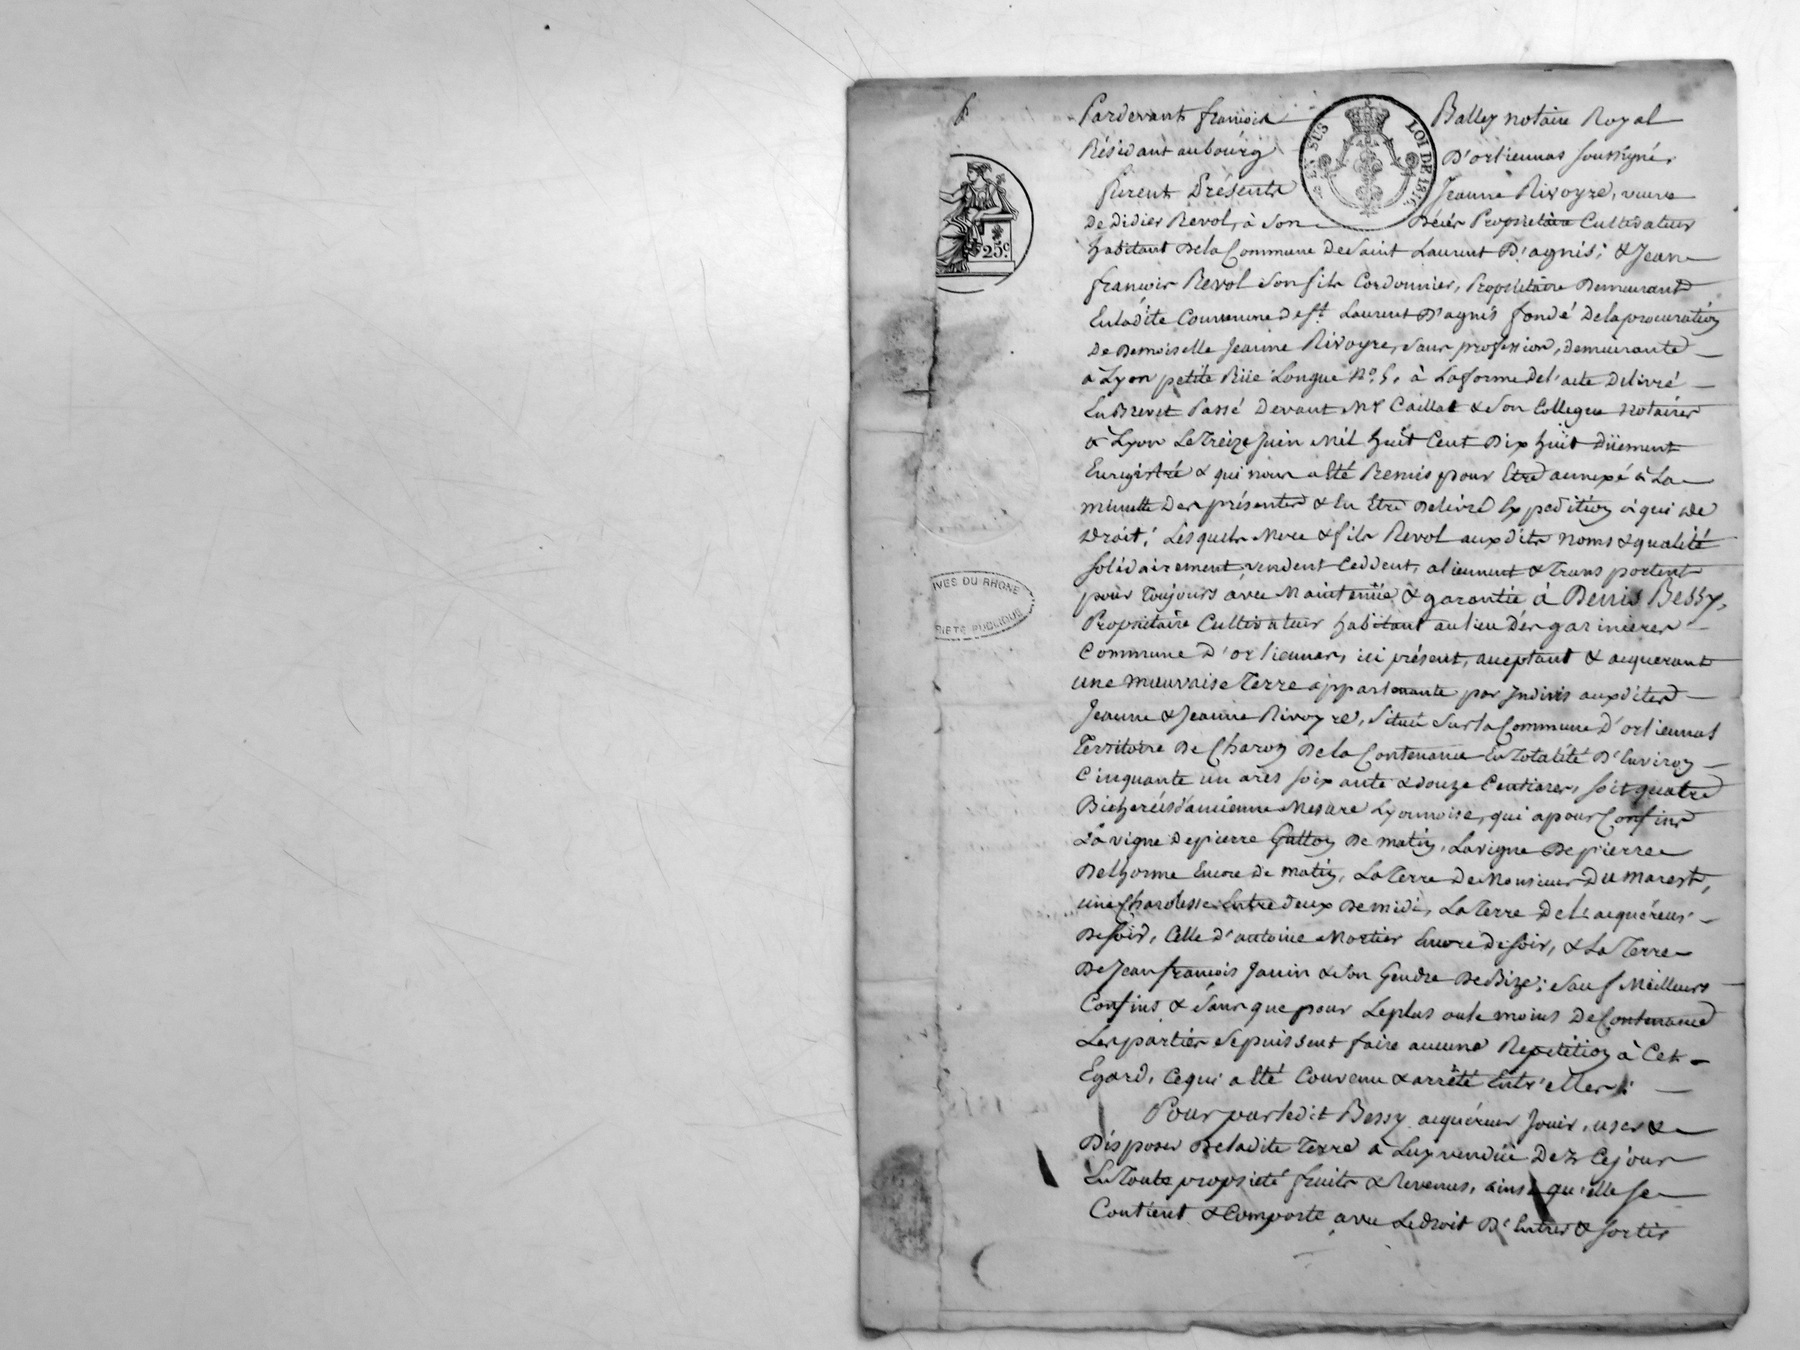 Pardevant françois Balley notaire Royal
Résidant au bourg D'orliennas soussigné,
furent Présents Jeanne Rivoyre, veuve
de didier Revol, à son Décès Propriétaire Cultivateur
habitant De la Commune De Saint Laurent D'agnis; & Jean
françois Revol son fils Cordonnier, Propriétaire Demeurant
En ladite Commune de St. Laurent D'agnis fondé De la procuration
De Demoiselle Jeanne Rivoyre, sans profession, demeurante
à Lyon petite Rüe Longue No. 5, à La forme de l'acte Délivré
En Brevet Passé Devant Mr Caillat & Son Collegue Notaires
à Lyon Le Treize Juin Mil huit Cent Dix huit düement
Enregistré & qui nous a Eté Remis pour Etre annexé à La
minutte Des présentes & En Etre Délivré Expédition à qui De
Droit; Lesquels Mere & fils Revol auxdits noms & qualité
Solidairement vendent Ceddent, alienent & Transportent
pour Toujours avec Maintenüe & garantie à Denis Bessy,
Propriétaire Cultivateur habitant au lieu Des garinieres
Commune D'orliennas, ici présent, acceptant & acquerant
une mauvaise Terre appartenante par Indivis auxdites
Jeanne & Jeanne Rivoyre, Située Sur la Commune D'orliennas
Territoire De Charon De la Contenance En Totalité D'Environ
Cinquante un ares soixante & douze Centiares, soit quatre
Bicherées d'ancienne Mesure Lyonnoise, qui a pour Confins
La vigne de pierre Gatton De matin, La vigne De pierre
Delhorme Encore de matin, La Terre De Monsieur Du marest,
une Charolesse Entre deux De midi, La Terre de L'acquéreur
De soir, Celle d'antoine Mortier Encore de soir, & La Terre
De Jean françois Janin & Son Gendre De Bize; sauf Meilleurs
Confins & Sans que pour Le plus ou le moins De Contenance
Les parties se puissent faire aucune Répétition à Cet
Egard, Ce qui a Eté Convenu & arrêté Entr'elles.
Pour par ledit Bessy acquéreur Jouir, user &
Disposer De ladite Terre à Luy vendüe Dez Ce jour
En Toute propriété fruits & Revenus, ainsi qu'elle se
Contient & Comporte avec Le Droit D'Entrer & sortir
25 c.
EN SUS
LOI DE 1816
IVES DU RHONE
RIETE PUBLIQUE